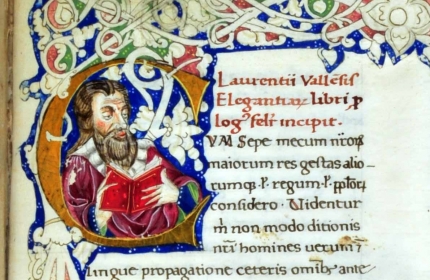 Laurentii Vallesis
Elegantiaꝝ libri p
logꝰ felr̃ incipit.
C
VM Sepe mecum nr̃oꝝ
maiorum res gestas alio-
rumqꝫ ·P· regum ·P· ppl̃orꝫ
considero. Videntur
m̃ non modo ditionis
nr̃i homines uerum ⁊
lingue propagatione ceteris omĩbꝰ ante